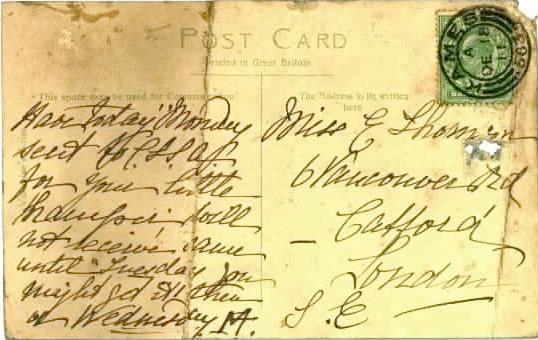 POST CARD
Printed in Great Britain
"This space may be used for Communication"
The Address to be written
here
Have today "Monday
sent to
for your little
hamper will
not receive same
until "Tuesday you
might get it then
or Wednesday. M.
Miss E Thomson
6 Vancouver Rd
Catford
London
S.E
KAMES
DE
11